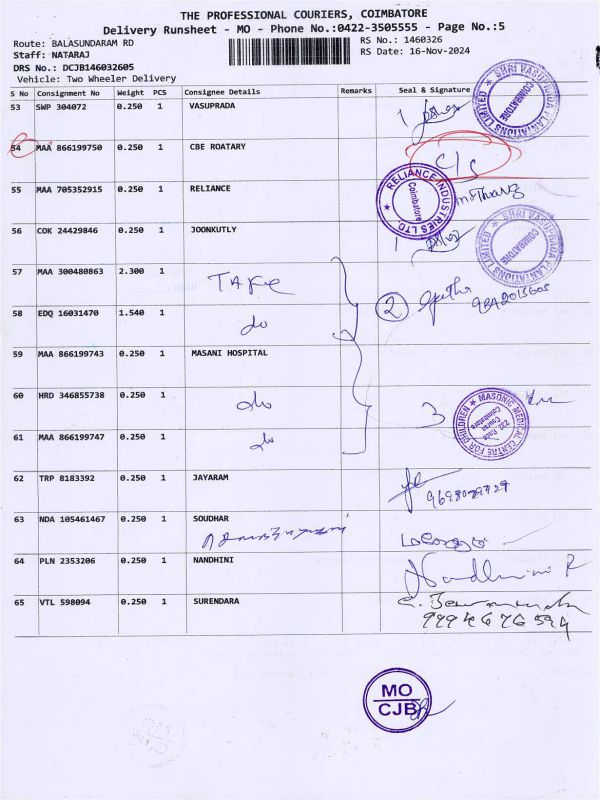 THE PROFESSIONAL COURIERS, COIMBATORE
Delivery Runsheet - MO - Phone No.:0422-3505555 - Page No.:5
Route: BALASUNDARAM RD RS No.: 1460326
Staff: NATARAJ RS Date: 16-Nov-2024
DRS No.: DCJB146032605
Vehicle: Two Wheeler Delivery
S No Consignment No Weight PCS Consignee Details Remarks Seal & Signature
53 SWP 304072 0.250 1 VASUPRADA 1
SHRI VASUPRADA PLANTATIONS LIMITED COIMBATORE
54 MAA 866199750 0.250 1 CBE ROATARY C/S
55 MAA 705352915 0.250 1 RELIANCE
RELIANCE INDUSTRIES LTD. Coimbatore
56 COK 24429846 0.250 1 JOONKUTLY 1
SHRI VASUPRADA PLANTATIONS LIMITED COIMBATORE
57 MAA 300480863 2.300 1 2
58 EDQ 16031470 1.540 1 do
59 MAA 866199743 0.250 1 MASANI HOSPITAL
60 HRD 346855738 0.250 1 do 3
MASONIC MEDICAL CENTRE FOR CHILDREN 232, Race Course Coimbatore
61 MAA 866199747 0.250 1 do
62 TRP 8183392 0.250 1 JAYARAM
63 NDA 105461467 0.250 1 SOUDHAR
64 PLN 2353206 0.250 1 NANDHINI Nandhini R
65 VTL 598094 0.250 1 SURENDARA
9994676594
MO
CJB